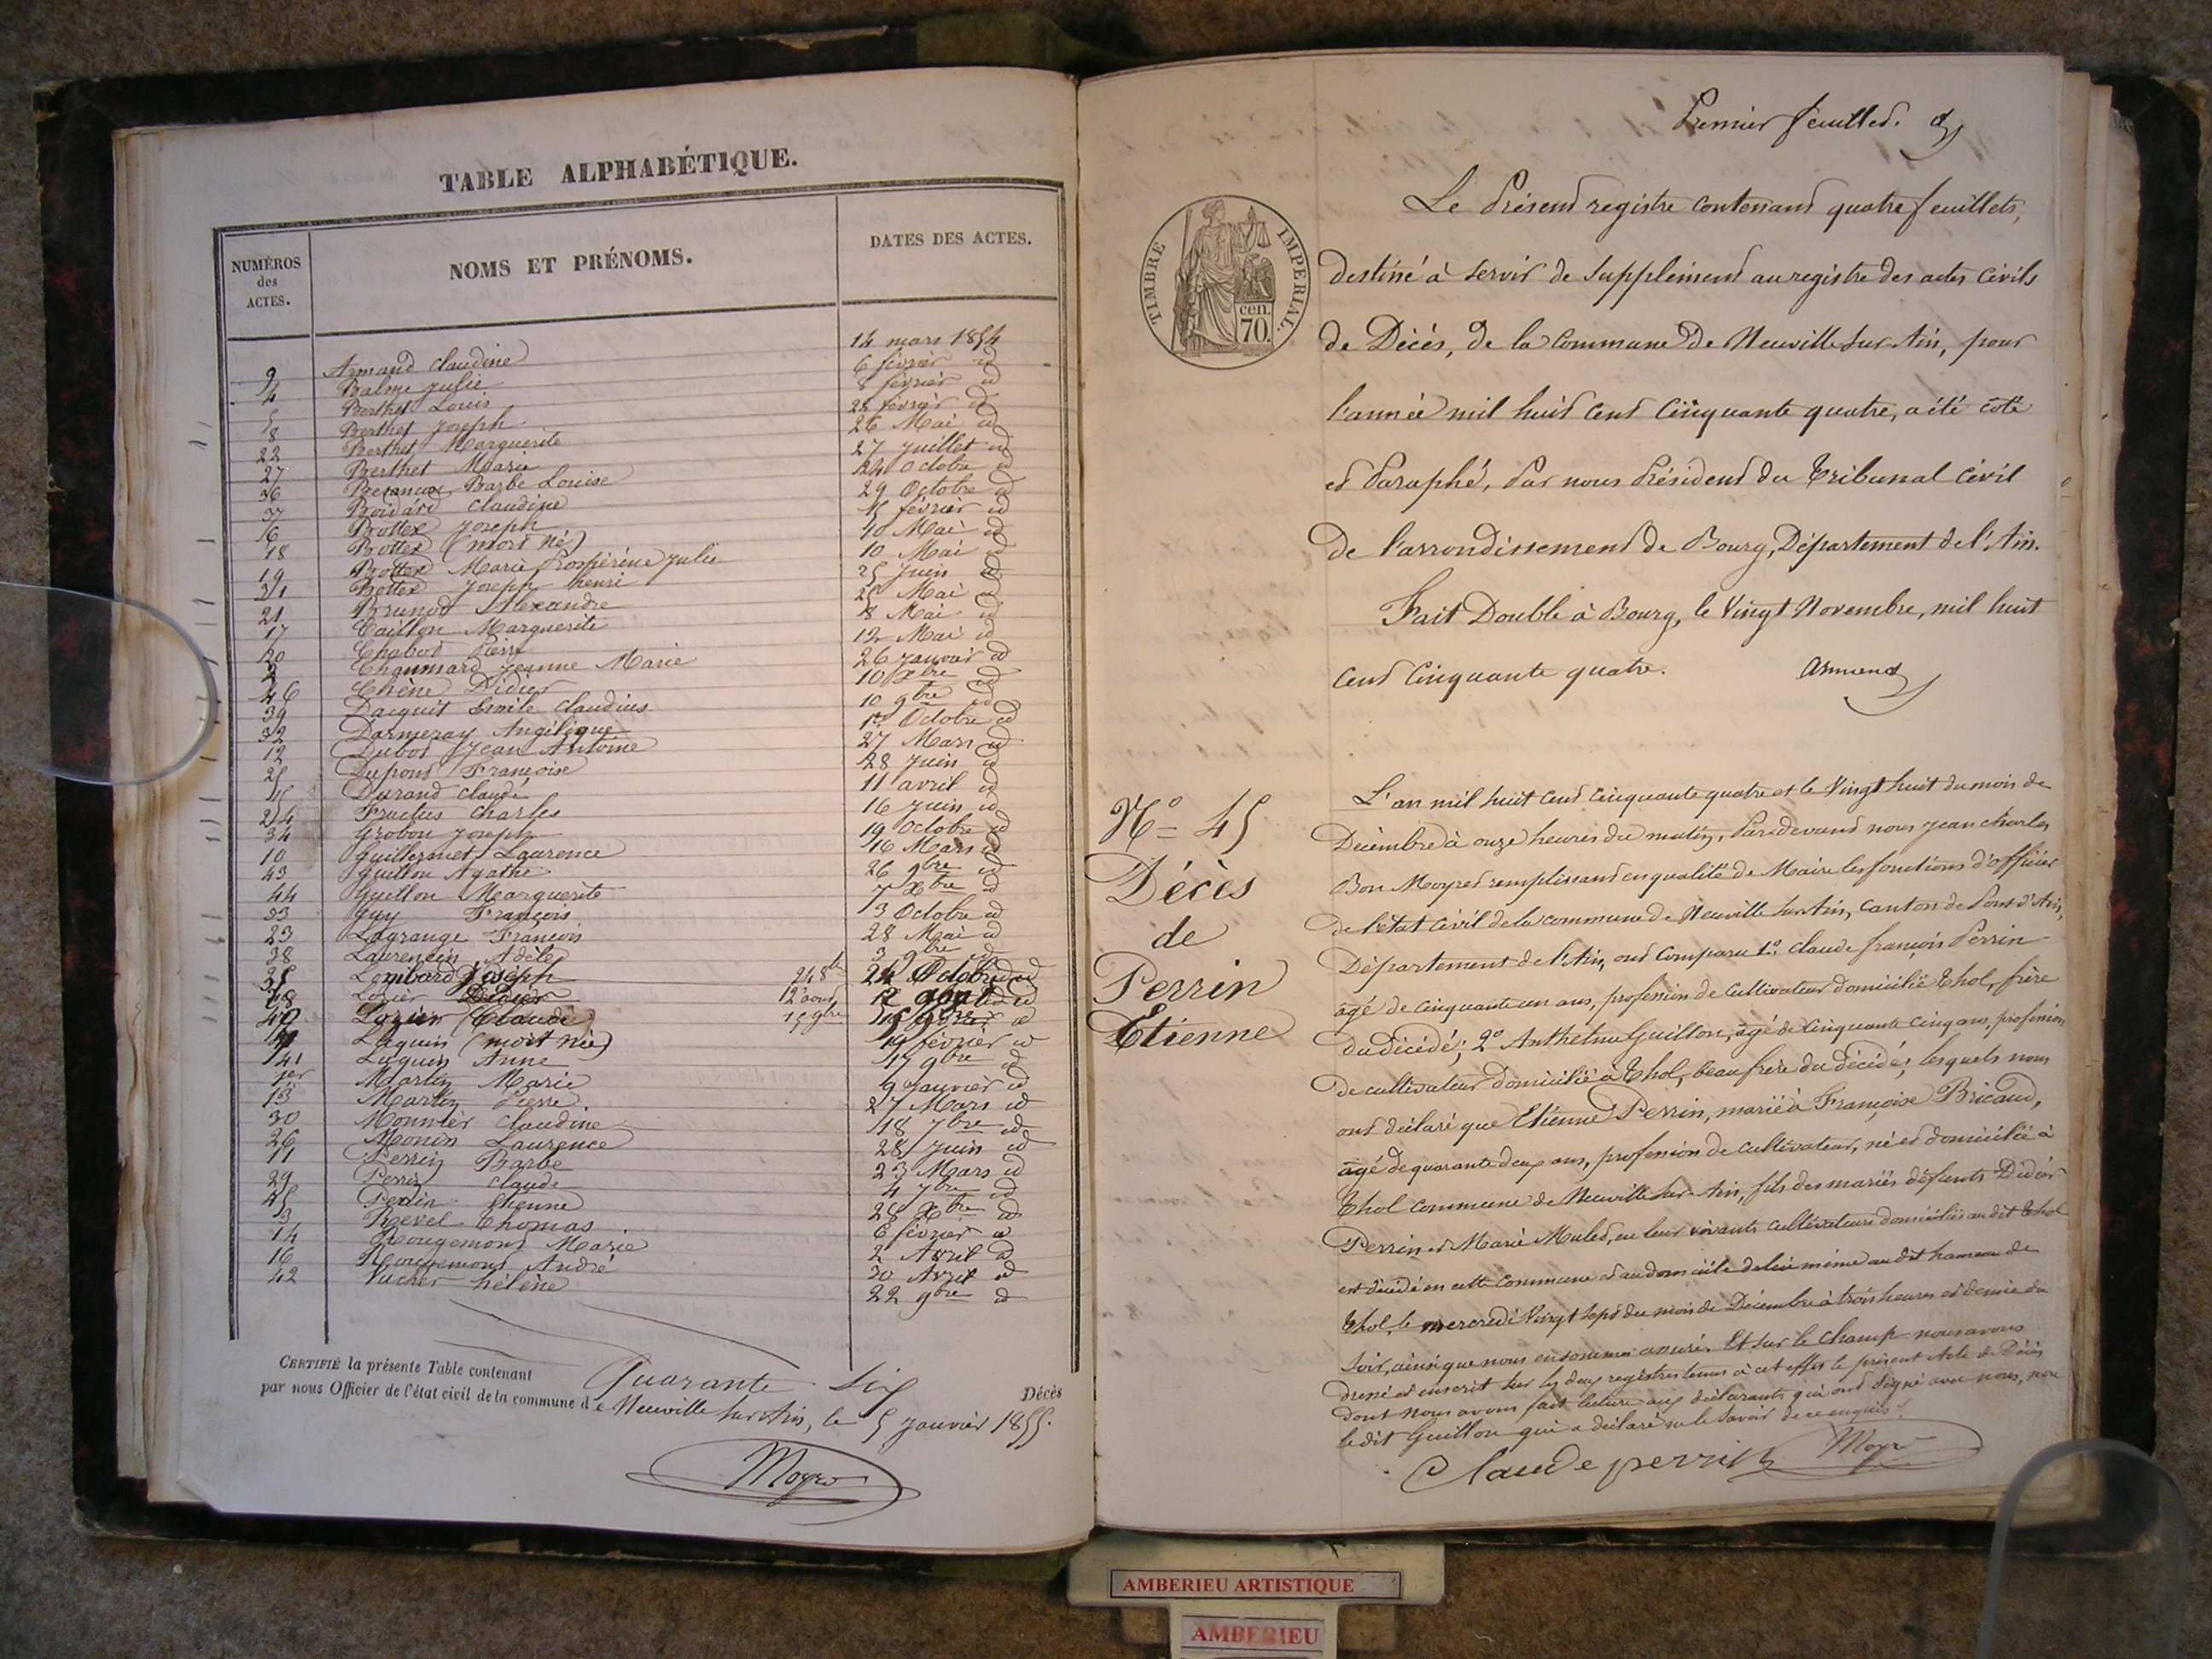 TABLE ALPHABÉTIQUE.
NUMÉROS des ACTES. NOMS ET PRÉNOMS. DATES DES ACTES.
9 Armand Claudine 14 mars 1854
4 Balme Julie 6 février id
5 Berthet Louis 8 février id
8 Berthet Joseph 22 février id
22 Berthet Marguerite 26 Mai id
27 Berthet Marie 27 Juillet id
36 Besançon Barbe Louise 24 Octobre id
37 Claudine 29 Octobre id
6 Bottex Joseph 15 février id
18 Bottex (mort né) 10 Mai id
19 Bottex Marie Prospérine Julie 10 Mai id
Bottex Joseph henri 25 Juin id
21 Brunod Alexandre 25 Mai id
17 Caillon Marguerite 8 Mai id
20 Chabod Pierre 12 Mai id
2 Chaumard Jeanne Marie 26 Janvier id
46 Chêne Didier 10 Xbre id
39 Dacquit Emile Claudius 10 9bre id
32 Darmezay Angélique 1er Octobre id
12 Dubos Jean Antoine 27 Mars id
25 Dupond Françoise 28 Juin id
15 Durand Claude 11 avril id
24 Fructus Charles 16 Juin id
34 Grobon Joseph 19 Octobre id
10 Guillermet Laurence 16 Mars id
43 Guillon Agathe 26 9bre id
44 Guillon Marguerite 7 Xbre id
33 Guy François 13 Octobre id
23 Lagrange François 28 Mai id
38 Laurencin Adèle 3 9bre id
35 Lombard Joseph 24 8bre 24 Octobre id
28 Lozier Didier 12 aout 12 id
40 Lozier Claude 15 9bre 15 9bre id
7 Luquin (mort née) 19 février id
41 Luquin Anne 17 9bre id
1er Martin Marie 9 Janvier id
13 Martin Pierre. 27 Mars id
30 Monnier Claudine 18 7bre id
26 Monin Laurence 28 Juin id
11 Perrin Barbe 23 Mars id
29 Perrin Claude 4 7bre id
45 Perrin Etienne 28 Xbre id
3 Revel Thomas 6 février id
14 Rougemond Marie 2 Avril id
16 Rougemond André 30 Avril id
42 Vucher hélène 22 9bre id
CERTIFIÉ la présente Table contenant Quarante Six Décès
par nous Officier de l'état civil de la commune de Neuville sur Ain, le 5 Janvier 1855.
Moyret
Premier feuillet.
TIMBRE IMPERIAL.
cen.
70.
Le Présent registre contenant quatre feuillets,
destiné à servir de Supplément au registre des actes civils
de Décès, de la Commune de Neuville sur Ain, pour
l'année mil huit cent cinquante quatre, a été coté
et Paraphé, Par nous Président du Tribunal Civil
de l'arrondissement de Bourg, Département de l'Ain.
Fait Double à Bourg, le Vingt Novembre, mil huit
cent Cinquante quatre.
N° 45
Décès
de
Perrin
Etienne
L'an mil huit cent cinquante quatre et le Vingt huit du mois de
Décembre à onze heures du matin, Pardevant nous Jean Charles
Bon Moyret remplissant en qualité de Maire les fonctions d'officier
de l'état civil de la commune de Neuville sur Ain, canton de Pont d'Ain,
Département de l'Ain, ont Comparu 1° Claude françois Perrin
âgé de cinquante un ans, profession de Cultivateur domicilié Thol, frère
du décédé; 2° Anthelme Guillon, âgé de Cinquante cinq ans, profession
de cultivateur domicilié à Thol, beau frère du décédé; lesquels nous
ont déclaré que Etienne Perrin, marié à Françoise Bricaud,
âgé de quarante deux ans, profession de cultivateur, né et domicilié à
Thol commune de Neuville sur Ain, fils des mariés défunts Didier
Perrin et Marie Mulet, en leur vivants cultivateurs domiciliés au dit Thol
est décédé en cette commune et au domicile de lui même au dit hameau de
Thol, le mercredi Vingt Sept du mois de Décembre à trois heures et demie du
soir, ainsi que nous en sommes assuré. Et sur le champ nous avons
dressé et inscrit sur les deux registres tenus à cet effet le présent Acte de Décès
dont nous avons fait lecture aux déclarants qui ont signé avec nous, non
le dit Guillon qui a déclaré ne le savoir de ce enquis.
Claude perrin Moyret
AMBERIEU ARTISTIQUE
AMBERIEU